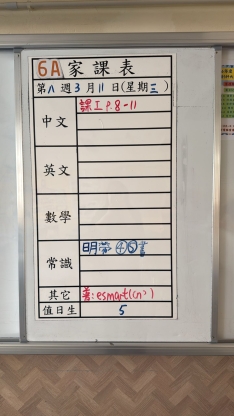 6A 家課表
第八週3月11日(星期三)
中文 課工 P.8-11
英文
數學
常識 明常④⑤書
其它 著:esmart(cn²)
值日生 5